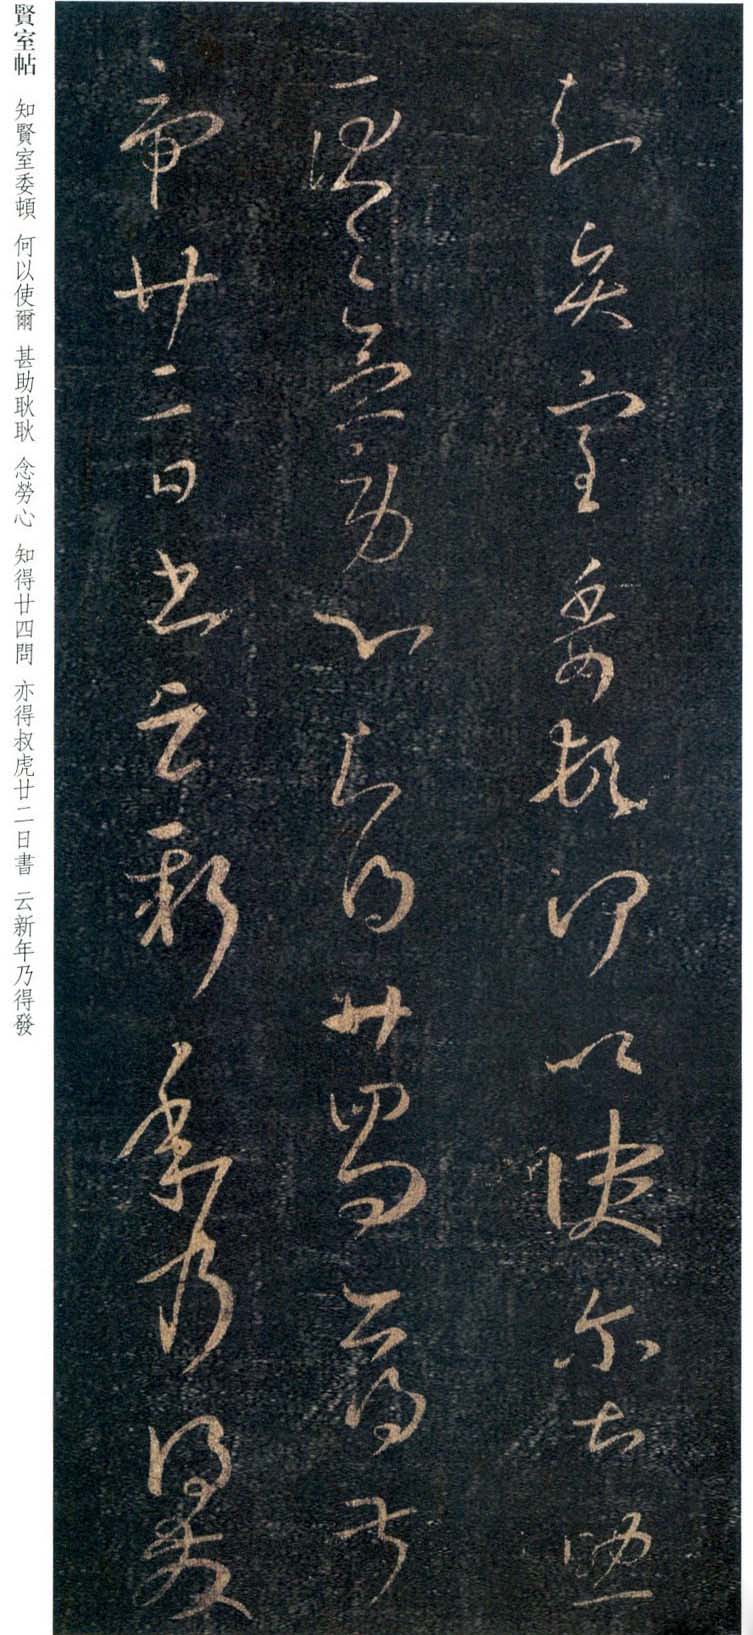 知賢室委頓何以使爾甚助
耿耿念勞心知得廿四問亦得叔
虎廿二日書云新年乃得發
賢室帖 知賢室委頓 何以使爾 甚助耿耿 念勞心 知得廿四問 亦得叔虎廿二日書 云新年乃得發